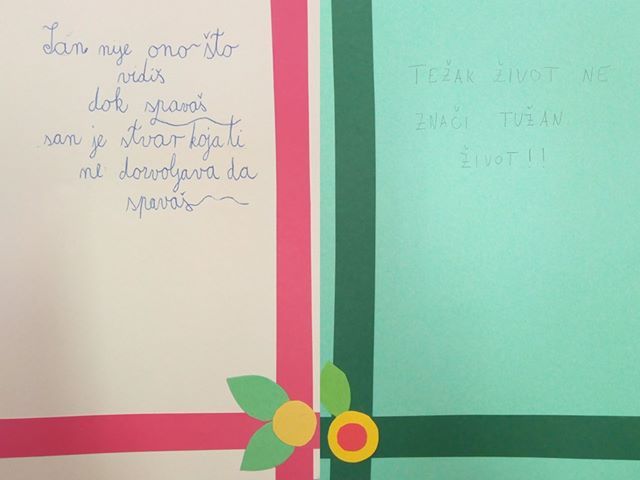 San nije ono što
vidiš
dok spavaš
san je stvar koja ti
ne dozvoljava da
spavaš
TEŽAK ŽIVOT NE
ZNAČI TUŽAN
ŽIVOT!!